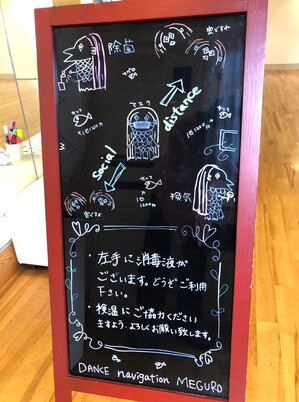 除菌
密ですね
マスク
distance
social
換気
密ですね
・左手に消毒液が
ございます。どうぞご利用
下さい。
・検温にご協力ください
ますよう よろしくお願い致します。
DANCE navigation MEGURO